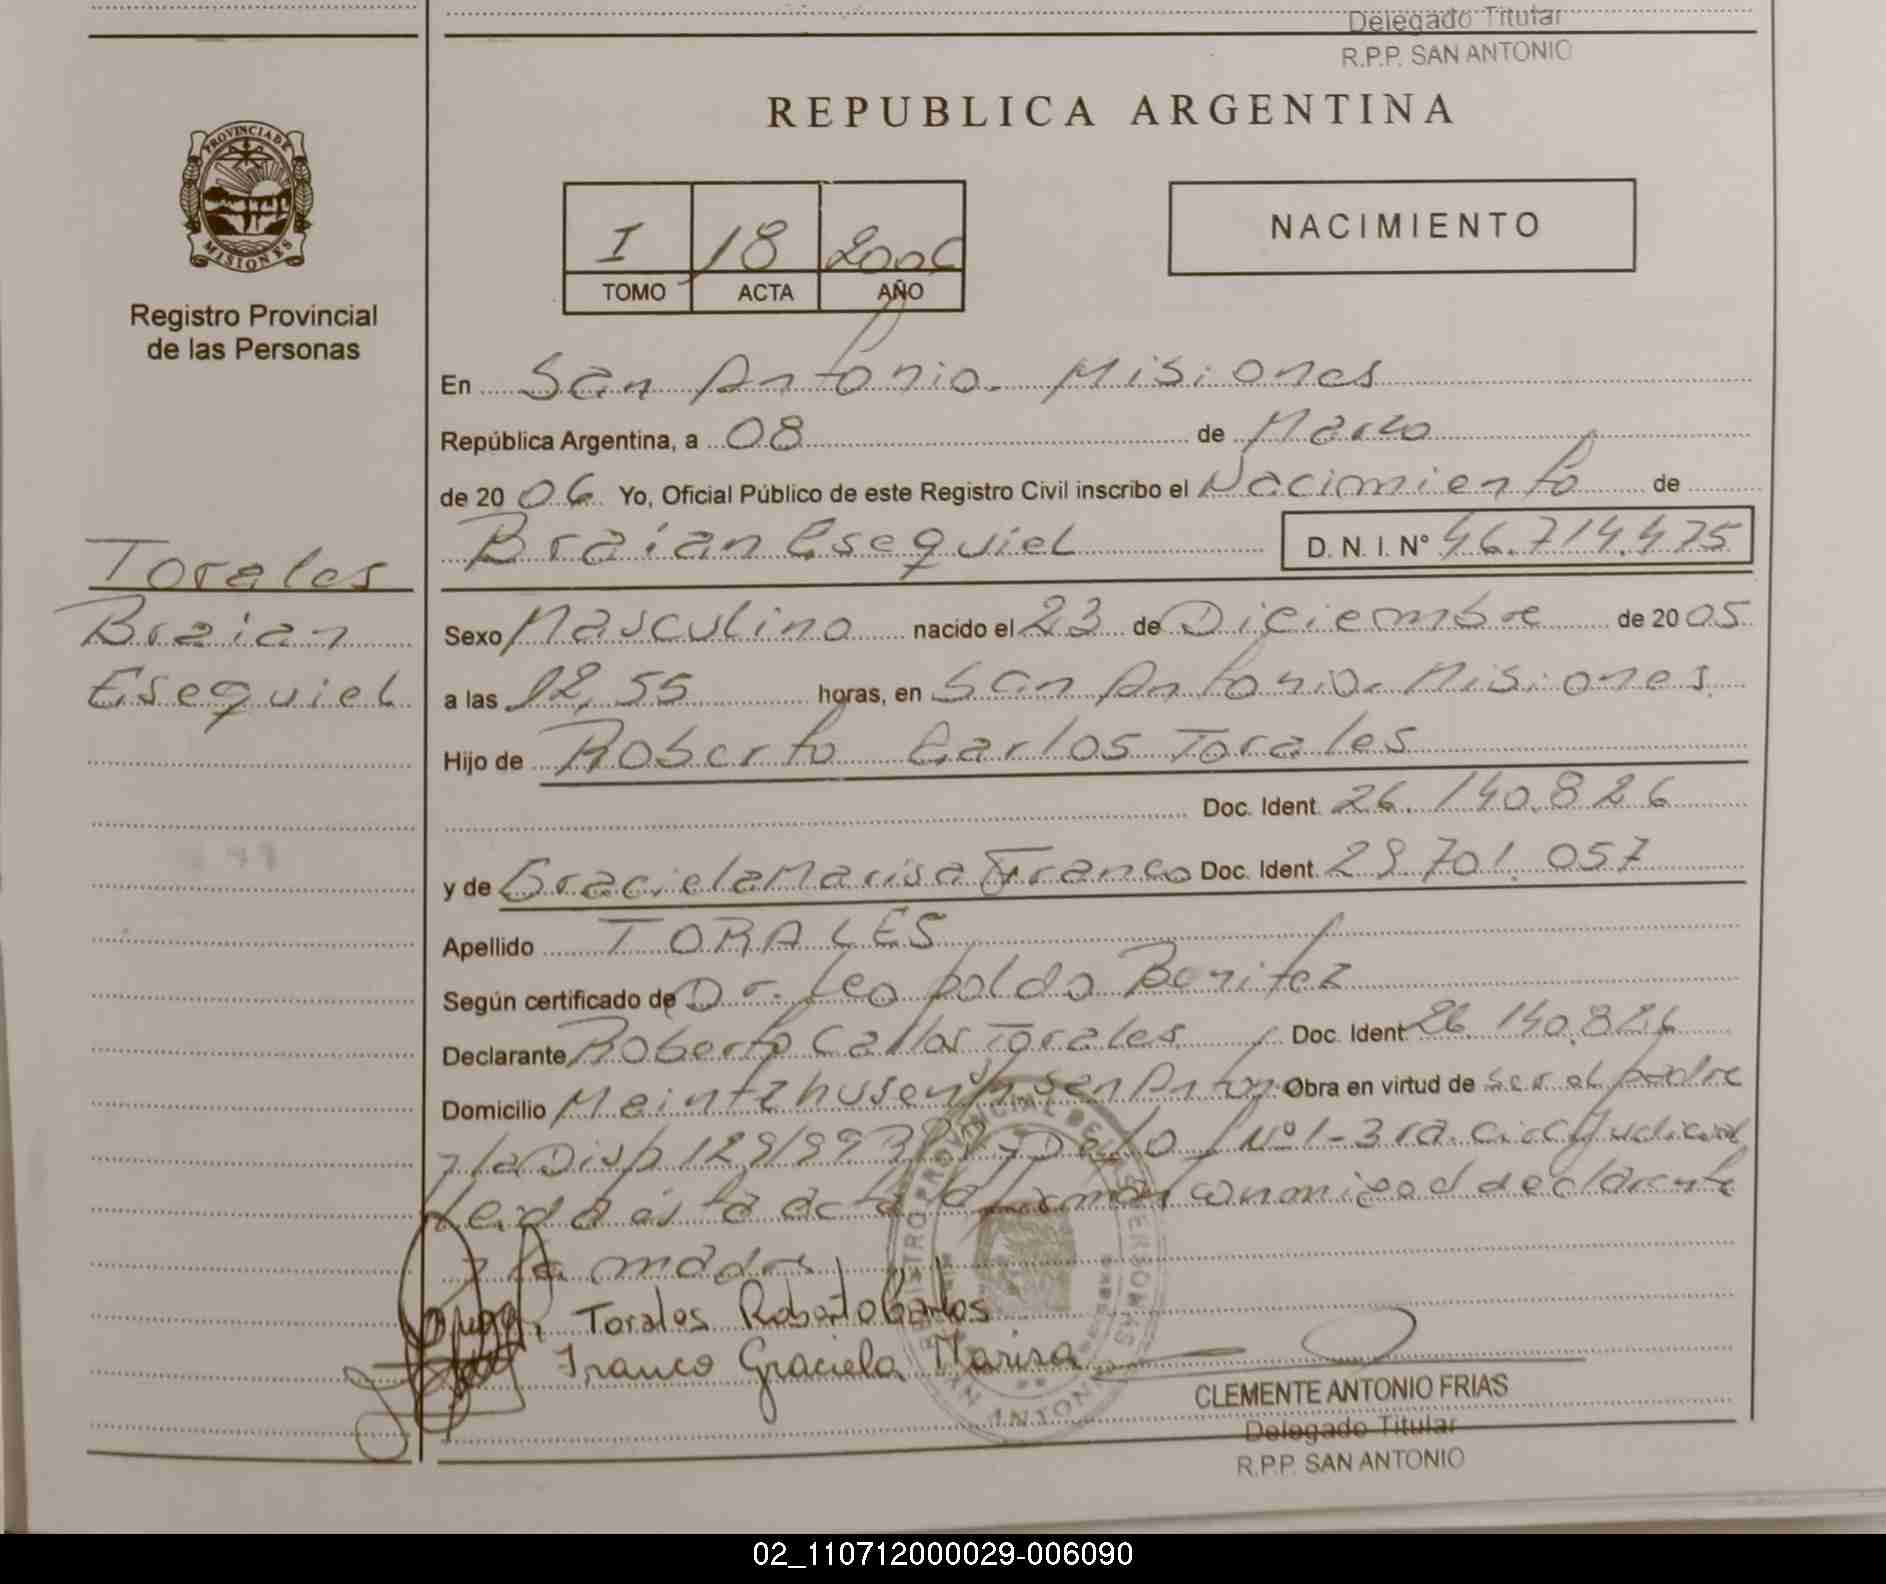 Delegado Titular
R.P.P. SAN ANTONIO
REPUBLICA ARGENTINA
PROVINCIA DE
MISIONES
Registro Provincial
de las Personas
I 18 2006
TOMO ACTA AÑO
NACIMIENTO
En San Antonio. Misiones
República Argentina, a 08 de Marzo
de 2006 Yo, Oficial Público de este Registro Civil inscribo el Nacimiento de
Braian Esequiel D. N. I. Nº 46.714.475
Torales
Braian
Esequiel
Sexo Masculino nacido el 23 de Diciembre de 2005
a las 12,55 horas, en San Antonio. Misiones.
Hijo de Roberto Carlos Torales
Doc. Ident. 26.140.826
y de Graciela Marisa Franco Doc. Ident. 29.701.057
Apellido TORALES
Según certificado de Dr. Leopoldo Benitez
Declarante Roberto Carlos Torales Doc. Ident. 26.140.826
Domicilio San Anton Obra en virtud de ser el padre
y la Disp 129/993 Nº1-3ra. circ Judicial
Leida ésta acta la firman conmigo el declarante
y la madre
Torales Roberto Carlos
Franco Graciela Marisa
REGISTRO PROVINCIAL DE LAS PERSONAS
SAN ANTONIO
CLEMENTE ANTONIO FRIAS
Delegado Titular
R.P.P. SAN ANTONIO
02_110712000029-006090